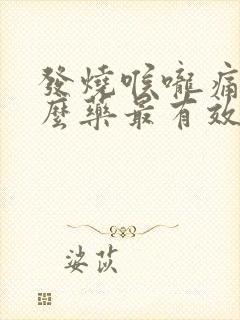 發燒喉嚨痛
麼藥最有效
娑苡